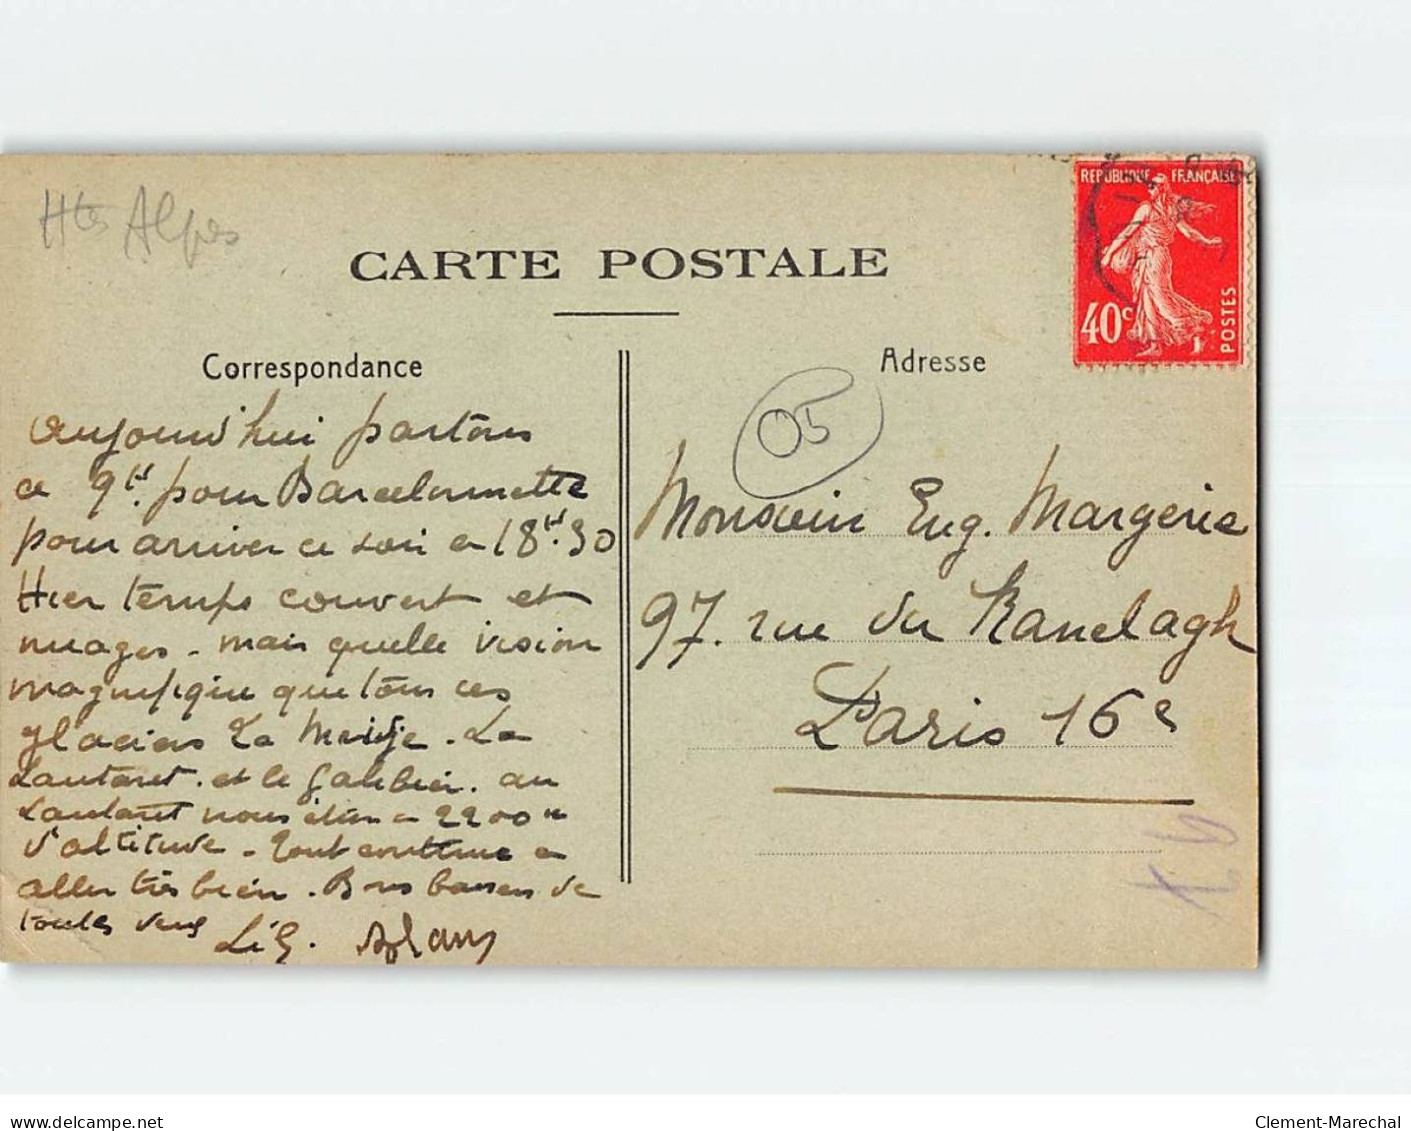 Htes Alpes
CARTE POSTALE
REPUBLIQUE FRANÇAISE
40c
POSTES
Correspondance
Adresse
05
Aujourd'hui partons
a 9H. pour Barcelonnette
pour arriver ce soir a 18H.30
Hier temps couvert et
nuages - mais quelle vision
magnifique que tous ces
glaciers La Meije. Le
Lautaret. et le Galibier. au
Lautaret nous étions a 2200m
d'altitude - Tout continue a
aller très bien. Bons baisers de
toutes
Monsieur Eug. Margerie
97. rue du Ranelagh
Paris 16e
Clement-Marechal
www.delcampe.net